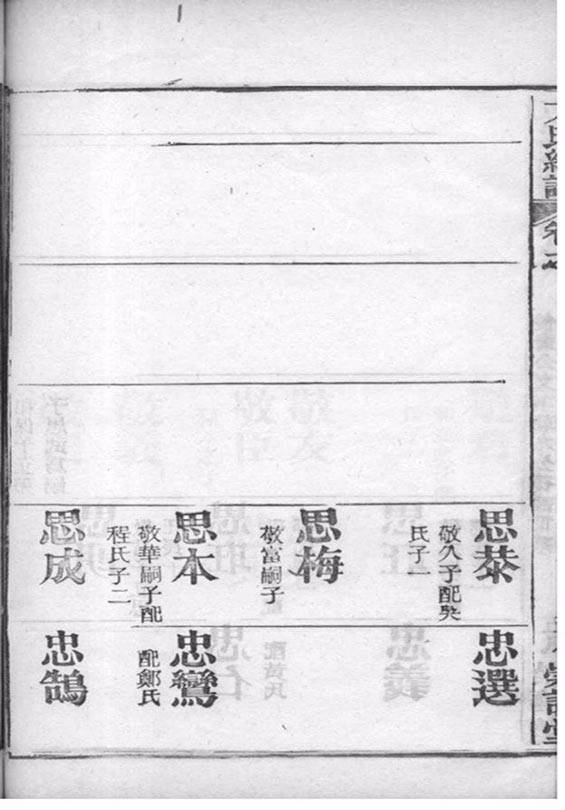 思恭
敬久子配吳
氏子一
思梅
敬富嗣子
思本
敬華嗣子配
程氏子二
思成
忠選
忠鸞
配鄭氏
忠鵠